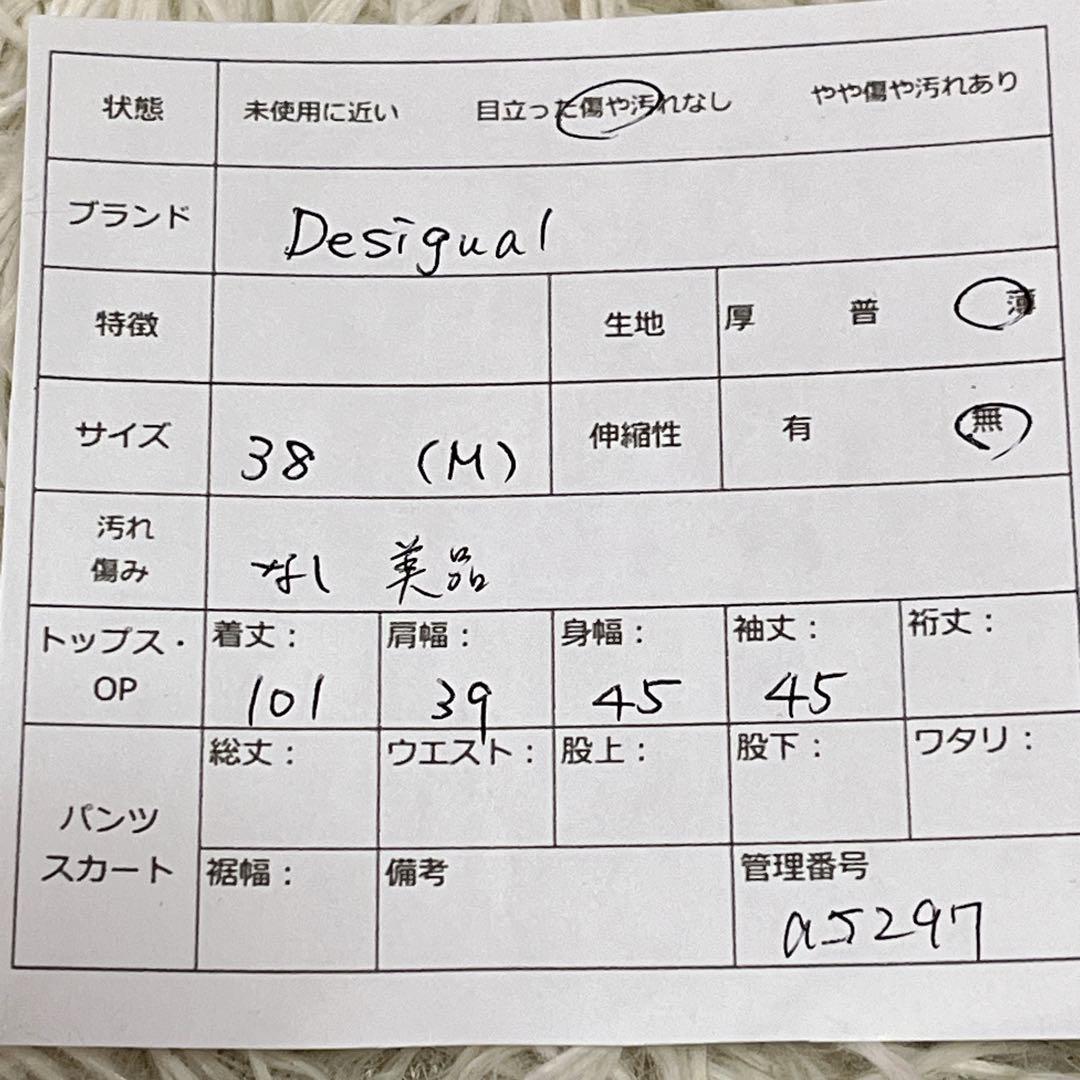 状態 未使用に近い 目立った傷や汚れなし やや傷や汚れあり
ブランド Desigual
特徴 生地 厚 普 薄
サイズ 38 (M) 伸縮性 有 無
汚れ
傷み なし 美品
トップス・
OP
着丈: 肩幅: 身幅: 袖丈: 裄丈:
101 39 45 45
パンツ
スカート
総丈: ウエスト: 股上: 股下: ワタリ:
裾幅: 備考 管理番号
a5297